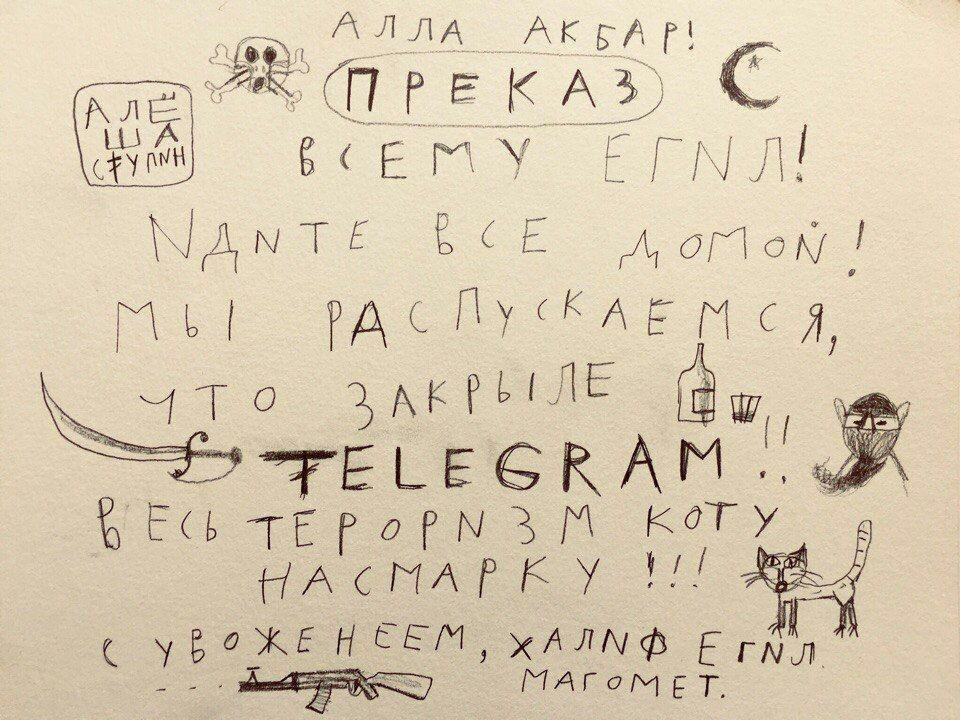 АЛЛА АКБАР!
ПРЕКАЗ
АЛЁ
ША
СТУПИН
ВСЕМУ ЕГИЛ!
ИДИТЕ ВСЕ ДОМОЙ!
МЫ РАСПУСКАЕМСЯ,
ЧТО ЗАКРЫЛЕ
TELEGRAM!!
ВЕСЬ ТЕРОРИЗМ КОТУ
НАСМАРКУ!!!
С УВОЖЕНЕЕМ, ХАЛИФ ЕГИЛ
МАГОМЕТ.